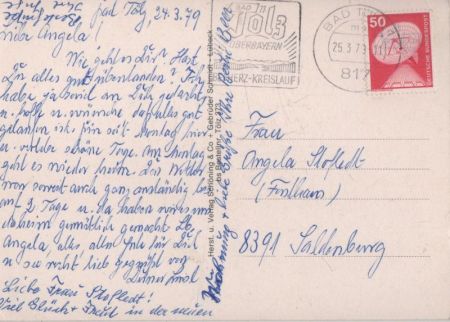 Bad Tölz, 24.3.79
Liebe Angela!
Wie geht es Dir? Hast
Du alles gut überstanden? Ich
habe ja soviel an Dich gedacht
u. hoffe u. wünsche daß alles gut
gelaufen ist. Bin seit Montag hier
u. verlebe schöne Tage. Am Sonntag
geht es wieder heim. Das Wetter
war soweit auch ganz anständig bis
auf 2 Tage u. da haben wir es uns
daheim gemütlich gemacht. Lb.
Angela, alles alles Gute für Dich
u. sei recht lieb gegrüßt von
Deiner
Liebe Frau Stofledt!
Viel Glück + Freud in der neuen
Wohnung + liebe Grüße Ihre
Herst. u. Verlag Schöning & Co · Gebrüder Schmidt · Lübeck
BAD
Tölz
OBERBAYERN
HERZ-KREISLAUF
BAD TÖLZ
25.3.79
817
50
DEUTSCHE BUNDESPOST
Frau
Angela Stofledt
(Forsthaus)
8391 Saldenburg